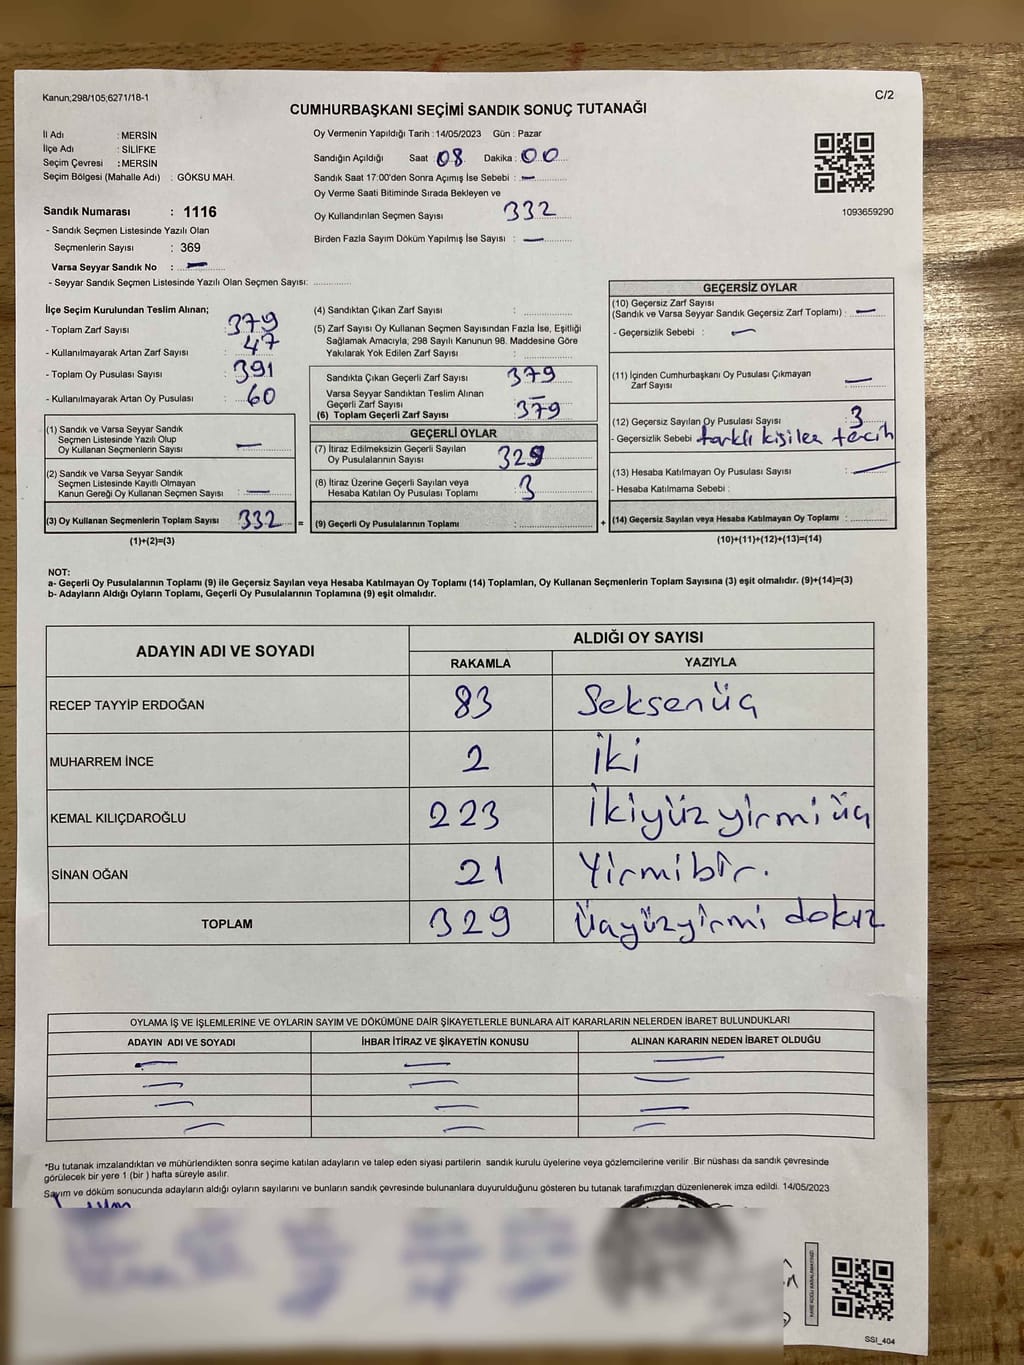 Kanun;298/105;6271/18-1
C/2
CUMHURBAŞKANI SEÇİMİ SANDIK SONUÇ TUTANAĞI
İl Adı : MERSİN
İlçe Adı : SİLİFKE
Seçim Çevresi : MERSİN
Seçim Bölgesi (Mahalle Adı) : GÖKSU MAH.
Sandık Numarası : 1116
- Sandık Seçmen Listesinde Yazılı Olan
Seçmenlerin Sayısı : 369
Varsa Seyyar Sandık No : —
- Seyyar Sandık Seçmen Listesinde Yazılı Olan Seçmen Sayısı:
Oy Vermenin Yapıldığı Tarih : 14/05/2023 Gün : Pazar
Sandığın Açıldığı Saat : 08 Dakika : 00
Sandık Saat 17:00'den Sonra Açımış İse Sebebi : —
Oy Verme Saati Bitiminde Sırada Bekleyen ve
Oy Kullandırılan Seçmen Sayısı 332
Birden Fazla Sayım Döküm Yapılmış İse Sayısı : —
1093659290
İlçe Seçim Kurulundan Teslim Alınan;
- Toplam Zarf Sayısı : 379
- Kullanılmayarak Artan Zarf Sayısı : 47
- Toplam Oy Pusulası Sayısı : 391
- Kullanılmayarak Artan Oy Pusulası : 60
(1) Sandık ve Varsa Seyyar Sandık
Seçmen Listesinde Yazılı Olup
Oy Kullanan Seçmenlerin Sayısı —
(2) Sandık ve Varsa Seyyar Sandık
Seçmen Listesinde Kayıtlı Olmayan
Kanun Gereği Oy Kullanan Seçmen Sayısı —
(3) Oy Kullanan Seçmenlerin Toplam Sayısı 332 =
(1)+(2)=(3)
(4) Sandıktan Çıkan Zarf Sayısı :
(5) Zarf Sayısı Oy Kullanan Seçmen Sayısından Fazla İse, Eşitliği
Sağlamak Amacıyla, 298 Sayılı Kanunun 98. Maddesine Göre
Yakılarak Yok Edilen Zarf Sayısı :
Sandıkta Çıkan Geçerli Zarf Sayısı 379
Varsa Seyyar Sandıktan Teslim Alınan
Geçerli Zarf Sayısı —
(6) Toplam Geçerli Zarf Sayısı 379
GEÇERLİ OYLAR
(7) İtiraz Edilmeksizin Geçerli Sayılan
Oy Pusulalarının Sayısı 329
(8) İtiraz Üzerine Geçerli Sayılan veya
Hesaba Katılan Oy Pusulası Toplamı 3
(9) Geçerli Oy Pusulalarının Toplamı : +
GEÇERSİZ OYLAR
(10) Geçersiz Zarf Sayısı
(Sandık ve Varsa Seyyar Sandık Geçersiz Zarf Toplamı) : —
- Geçersizlik Sebebi : —
(11) İçinden Cumhurbaşkanı Oy Pusulası Çıkmayan
Zarf Sayısı —
(12) Geçersiz Sayılan Oy Pusulası Sayısı : 3
- Geçersizlik Sebebi farklı kişiler tecih
(13) Hesaba Katılmayan Oy Pusulası Sayısı : —
- Hesaba Katılmama Sebebi :
(14) Geçersiz Sayılan veya Hesaba Katılmayan Oy Toplamı :
(10)+(11)+(12)+(13)=(14)
NOT:
a- Geçerli Oy Pusulalarının Toplamı (9) ile Geçersiz Sayılan veya Hesaba Katılmayan Oy Toplamı (14) Toplamları, Oy Kullanan Seçmenlerin Toplam Sayısına (3) eşit olmalıdır. (9)+(14)=(3)
b- Adayların Aldığı Oyların Toplamı, Geçerli Oy Pusulalarının Toplamına (9) eşit olmalıdır.
ADAYIN ADI VE SOYADI
ALDIĞI OY SAYISI
RAKAMLA YAZIYLA
RECEP TAYYİP ERDOĞAN 83 Seksenüç
MUHARREM İNCE 2 İki
KEMAL KILIÇDAROĞLU 223 İkiyüz yirmi üç
SİNAN OĞAN 21 Yirmibir.
TOPLAM 329 Üçyüzyirmi dokuz
OYLAMA İŞ VE İŞLEMLERİNE VE OYLARIN SAYIM VE DÖKÜMÜNE DAİR ŞİKAYETLERLE BUNLARA AİT KARARLARIN NELERDEN İBARET BULUNDUKLARI
ADAYIN ADI VE SOYADI İHBAR İTİRAZ VE ŞİKAYETİN KONUSU ALINAN KARARIN NEDEN İBARET OLDUĞU
— — —
— — —
— — —
— — —
*Bu tutanak imzalandıktan ve mühürlendikten sonra seçime katılan adayların ve talep eden siyasi partilerin sandık kurulu üyelerine veya gözlemcilerine verilir. Bir nüshası da sandık çevresinde
görülecek bir yere 1 (bir ) hafta süreyle asılır.
Sayım ve döküm sonucunda adayların aldığı oyların sayılarını ve bunların sandık çevresinde bulunanlara duyurulduğunu gösteren bu tutanak tarafımızdan düzenlenerek imza edildi. 14/05/2023
SSI_404